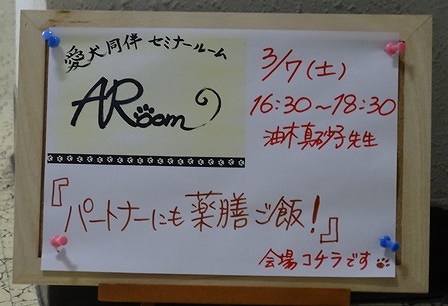 愛犬同伴 セミナールーム
ARoom
3/7(土)
16:30～18:30
油木真砂子先生
『パートナーにも薬膳ご飯!』
会場コチラです